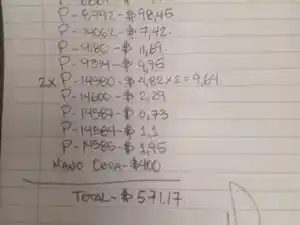 P-5792-$98,45
P-14062-$7,42.
P-9180-$11,69.
P-9374-$4,95
2x P-14580-$4,82x2=9,64.
P-14600-$2,29
P-14587-$0,73
P-14584-$1.1
P-14585-$1,95
MANO OBRA-$400
TOTAL-$571,17